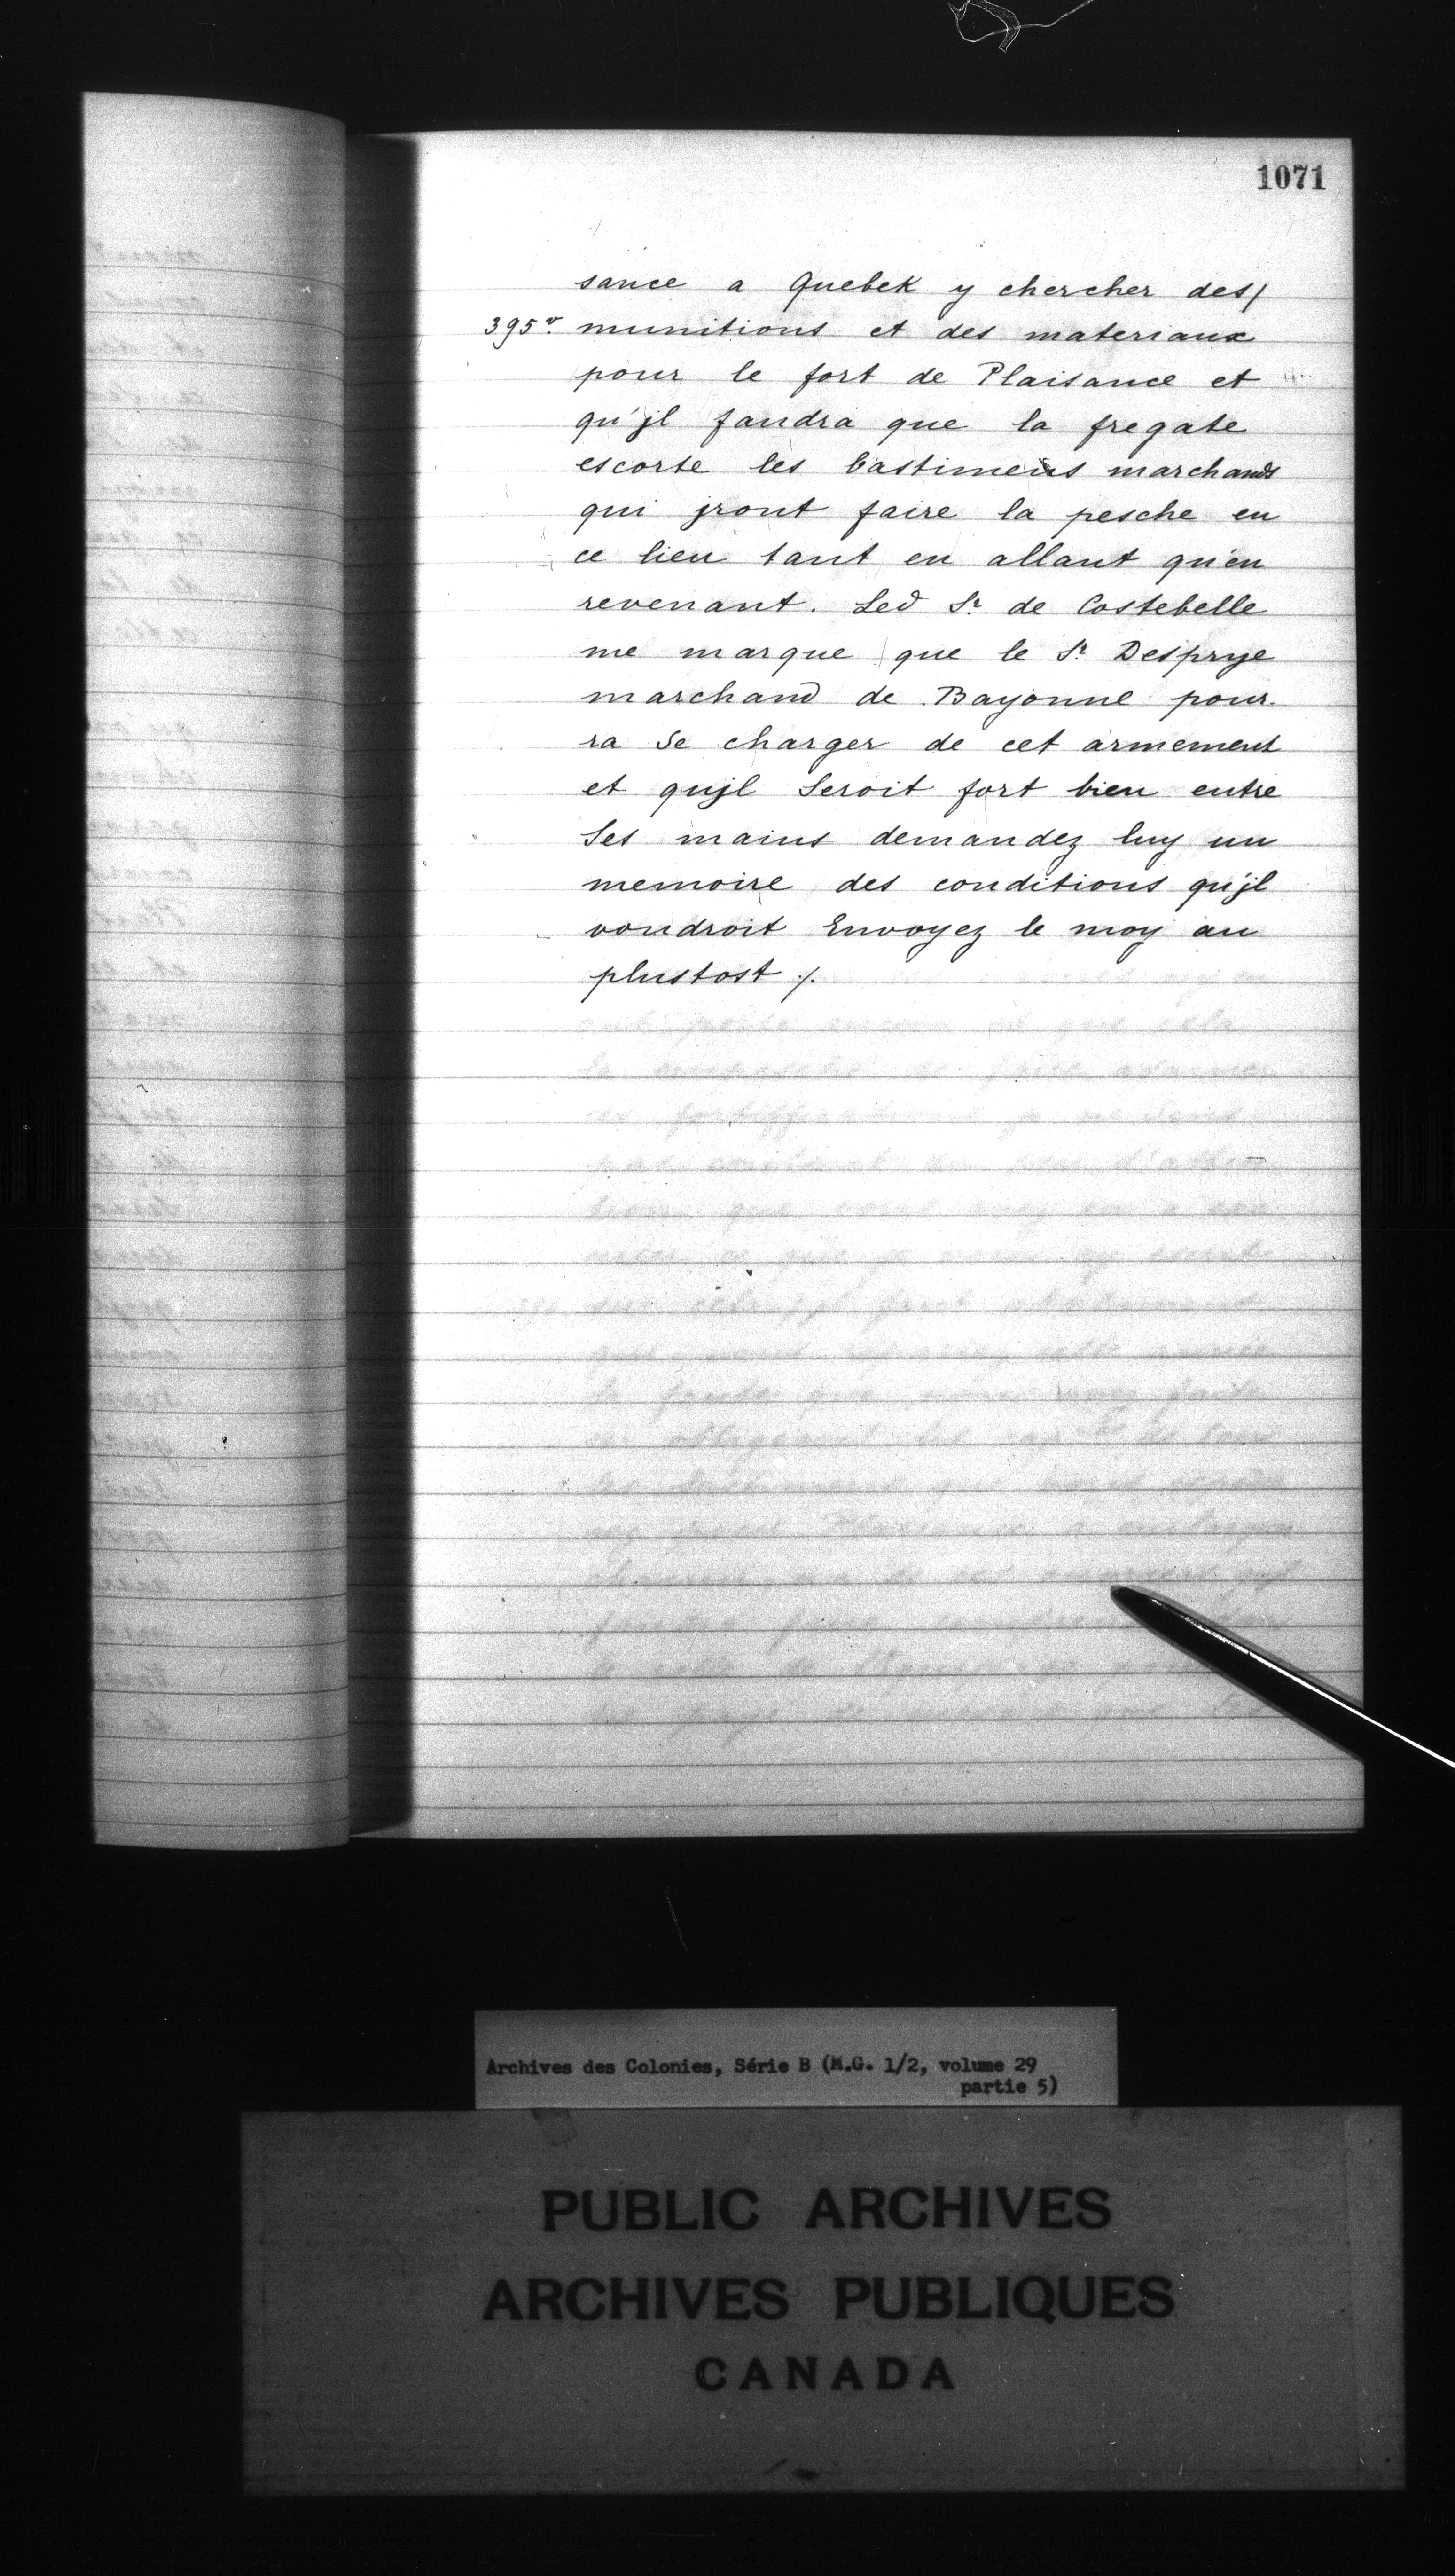 1071
sance a Quebek y chercher des/
395v. munitions et des materiaux
pour le fort de Plaisance et
qu'jl faudra que la fregate
escorte les bastimens marchands
qui jront faire la pesche en
ce lieu tant en allant qu'en
revenant. Led Sr. de Costebelle
me marque que le Sr. Desprye
marchand de Bayonne pour-
ra se charger de cet armement
et qujl Seroit fort bien entre
Ses mains demandez luy un
memoire des conditions qu'jl
voudroit Envoyez le moy au
plustost /.
Archives des Colonies, Série B (M.G. 1/2, volume 29
partie 5)
PUBLIC ARCHIVES
ARCHIVES PUBLIQUES
CANADA